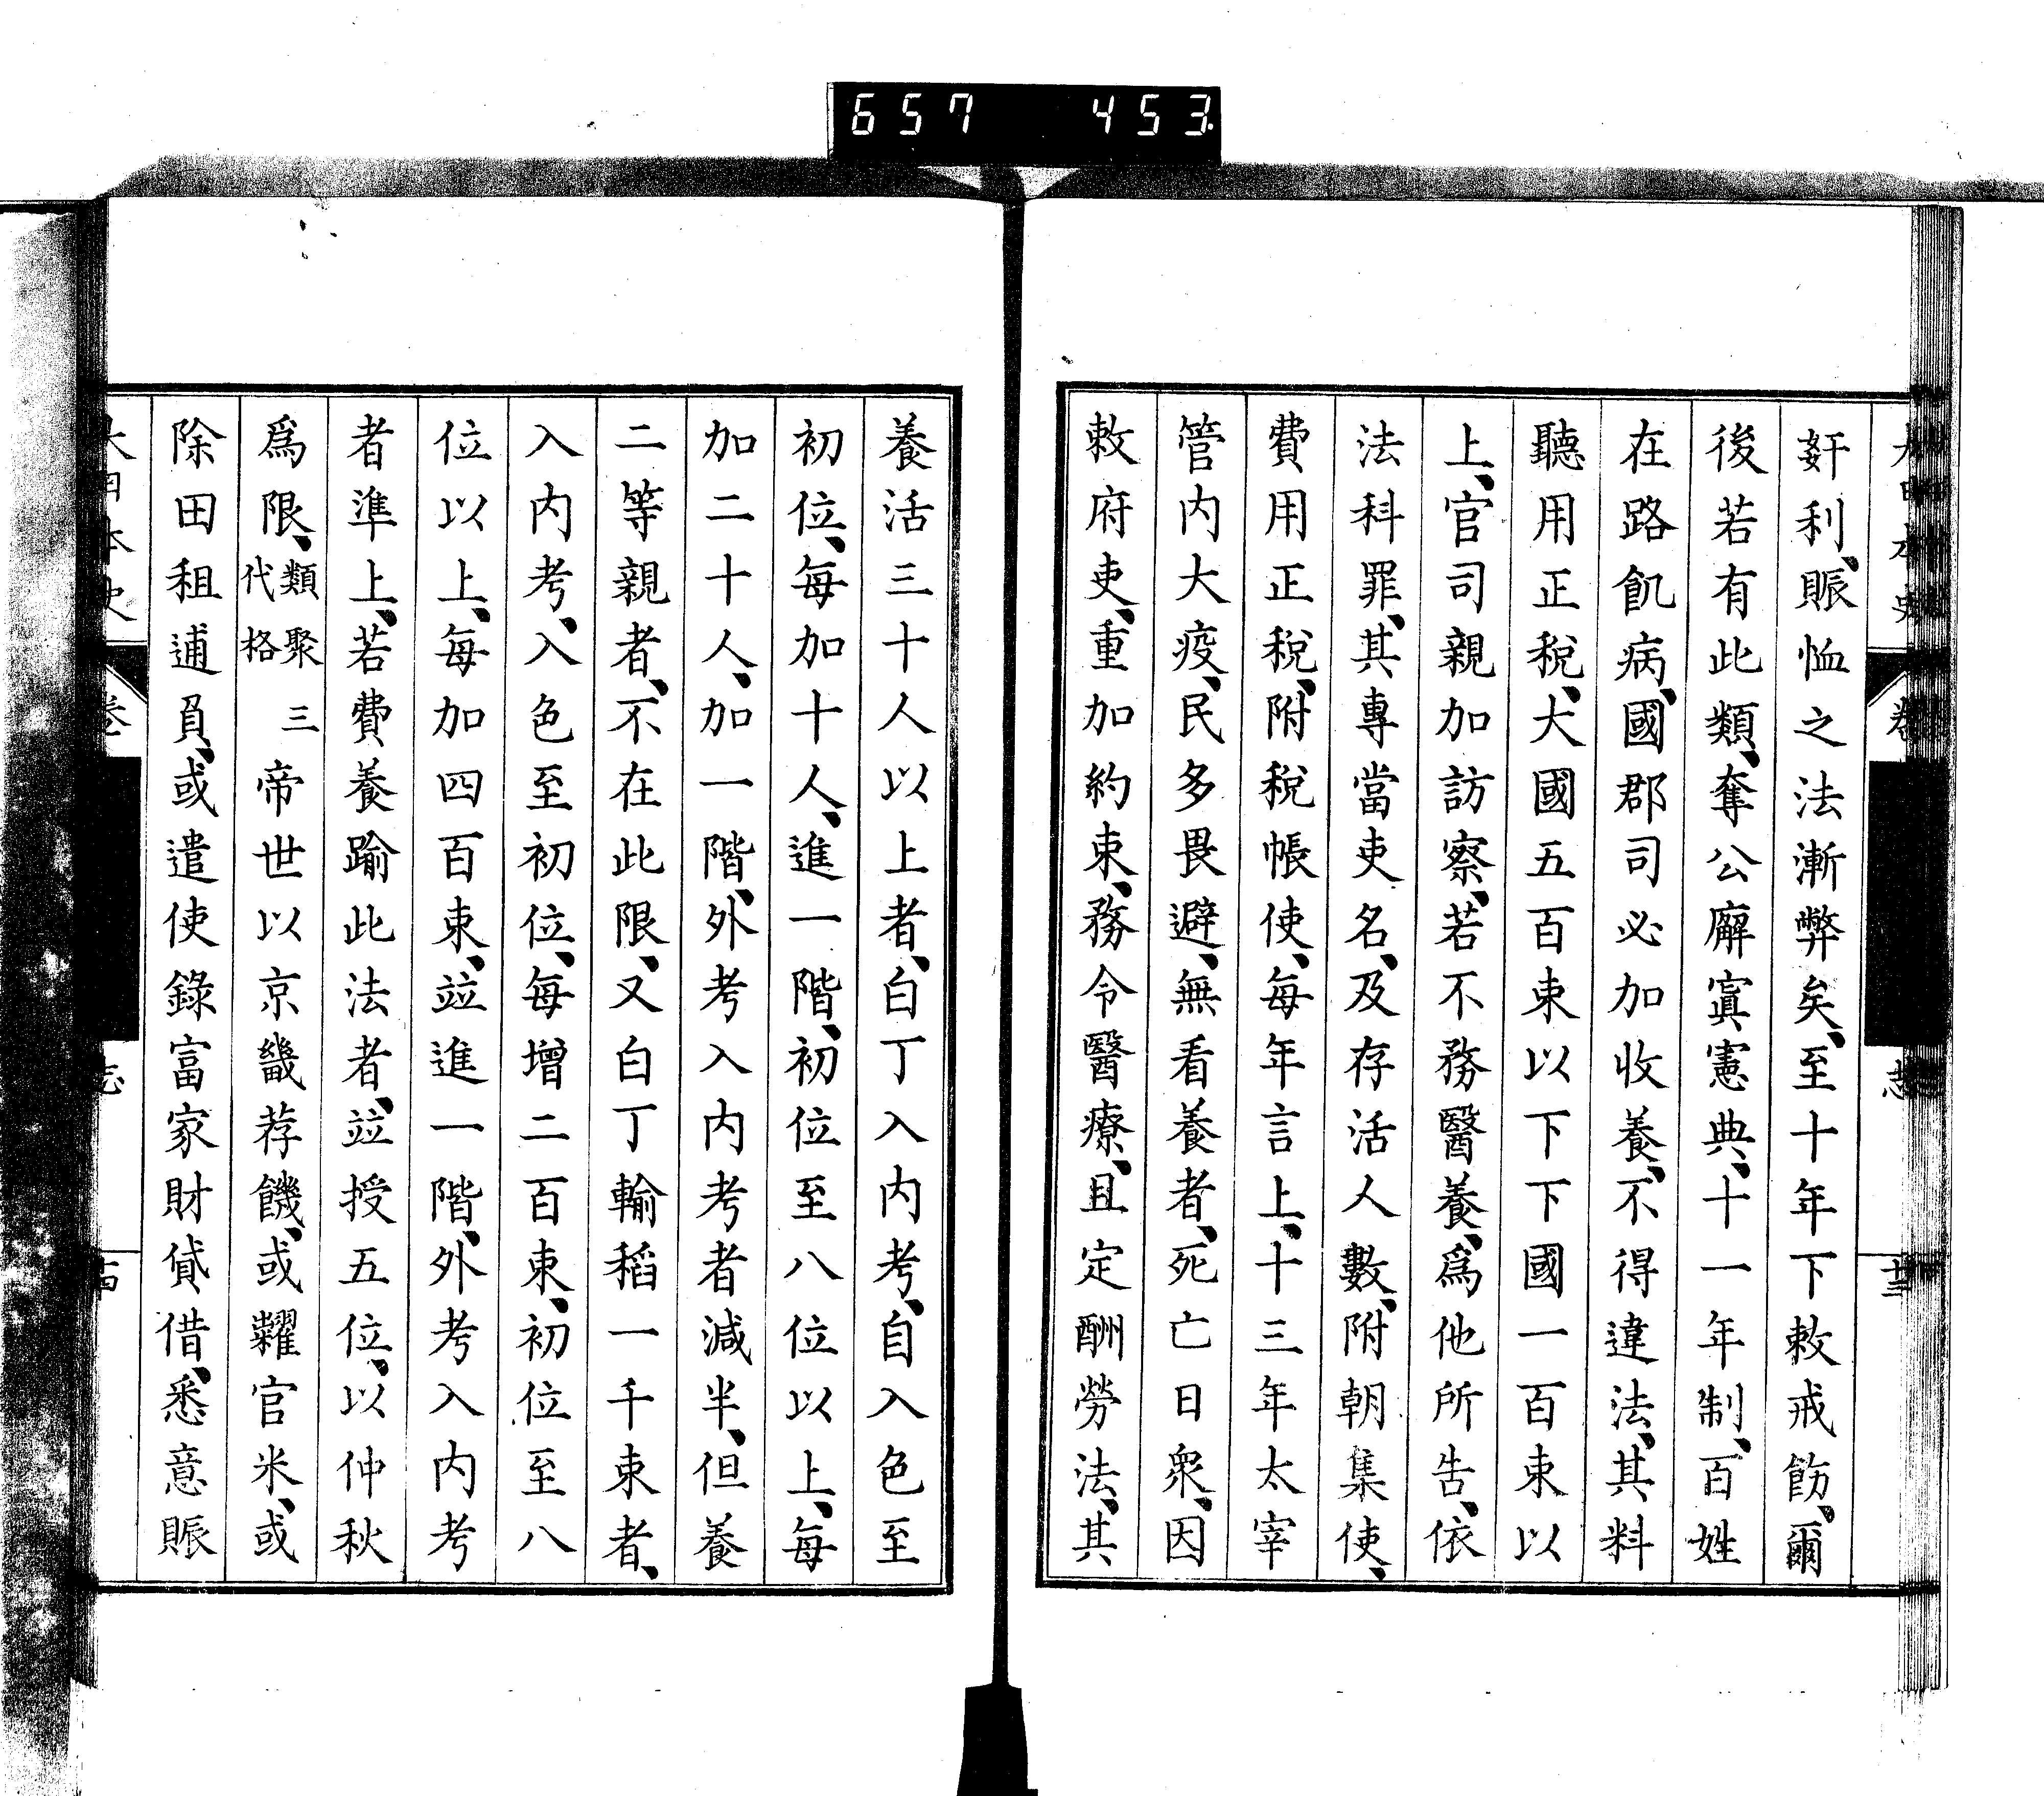 657 453
奸利、賑恤之法漸弊矣、至十年下敕戒飭、爾
後若有此類、奪公廨寘憲典、十一年制、百姓
在路飢病、國郡司必加收養、不得違法、其料
聽用正稅、大國五百束以下下國一百束以
上、官司親加訪察、若不務醫養、爲他所告、依
法科罪、其專當吏名、及存活人數、附朝集使、
費用正稅、附稅帳使、每年言上、十三年太宰
管内大疫、民多畏避、無看養者、死亡日衆、因
敕府吏、重加約束、務令醫療、且定酬勞法、其
養活三十人以上者、白丁入内考、自入色至
初位、每加十人、進一階、初位至八位以上、每
加二十人、加一階、外考入内考者減半、但養
二等親者、不在此限、又白丁輸稻一千束者、
入内考、入色至初位、每增二百束、初位至八
位以上、每加四百束、竝進一階、外考入内考
者準上、若費養踰此法者、竝授五位、以仲秋
爲限、類聚三代格帝世以京畿荐饑、或糶官米、或
除田租逋負、或遣使錄富家財貸借、悉意賑